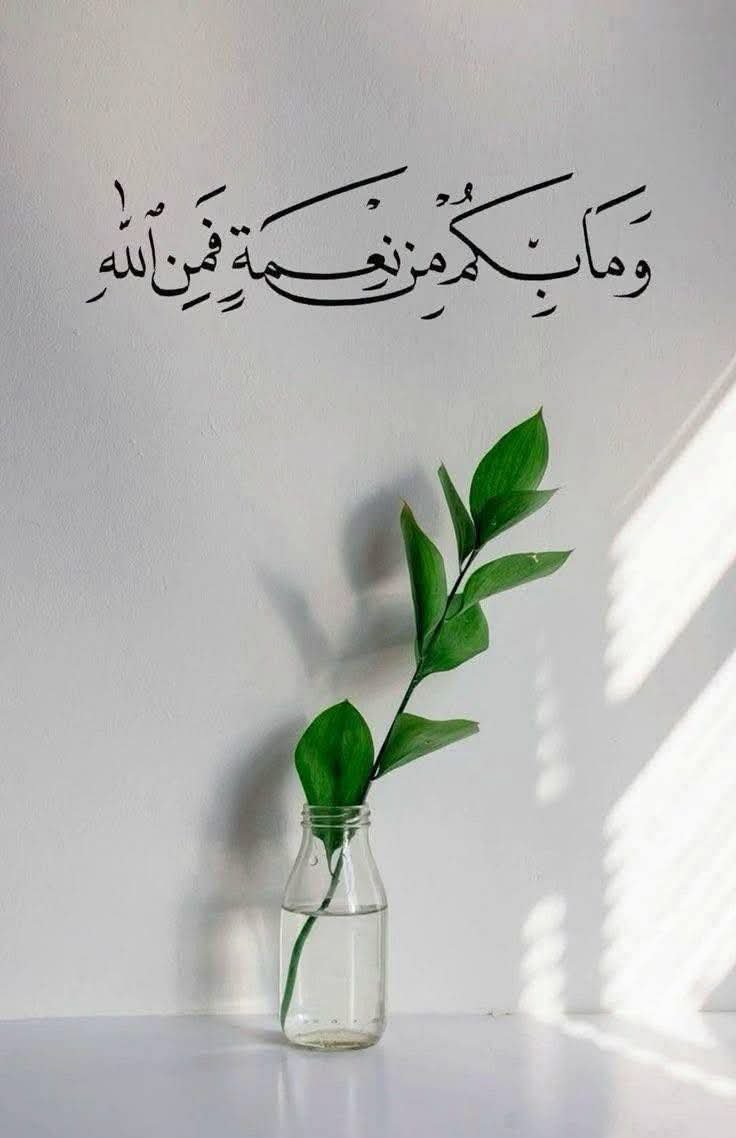 وَمَا بِكُم مِّن نِّعْمَةٍ فَمِنَ اللَّهِ